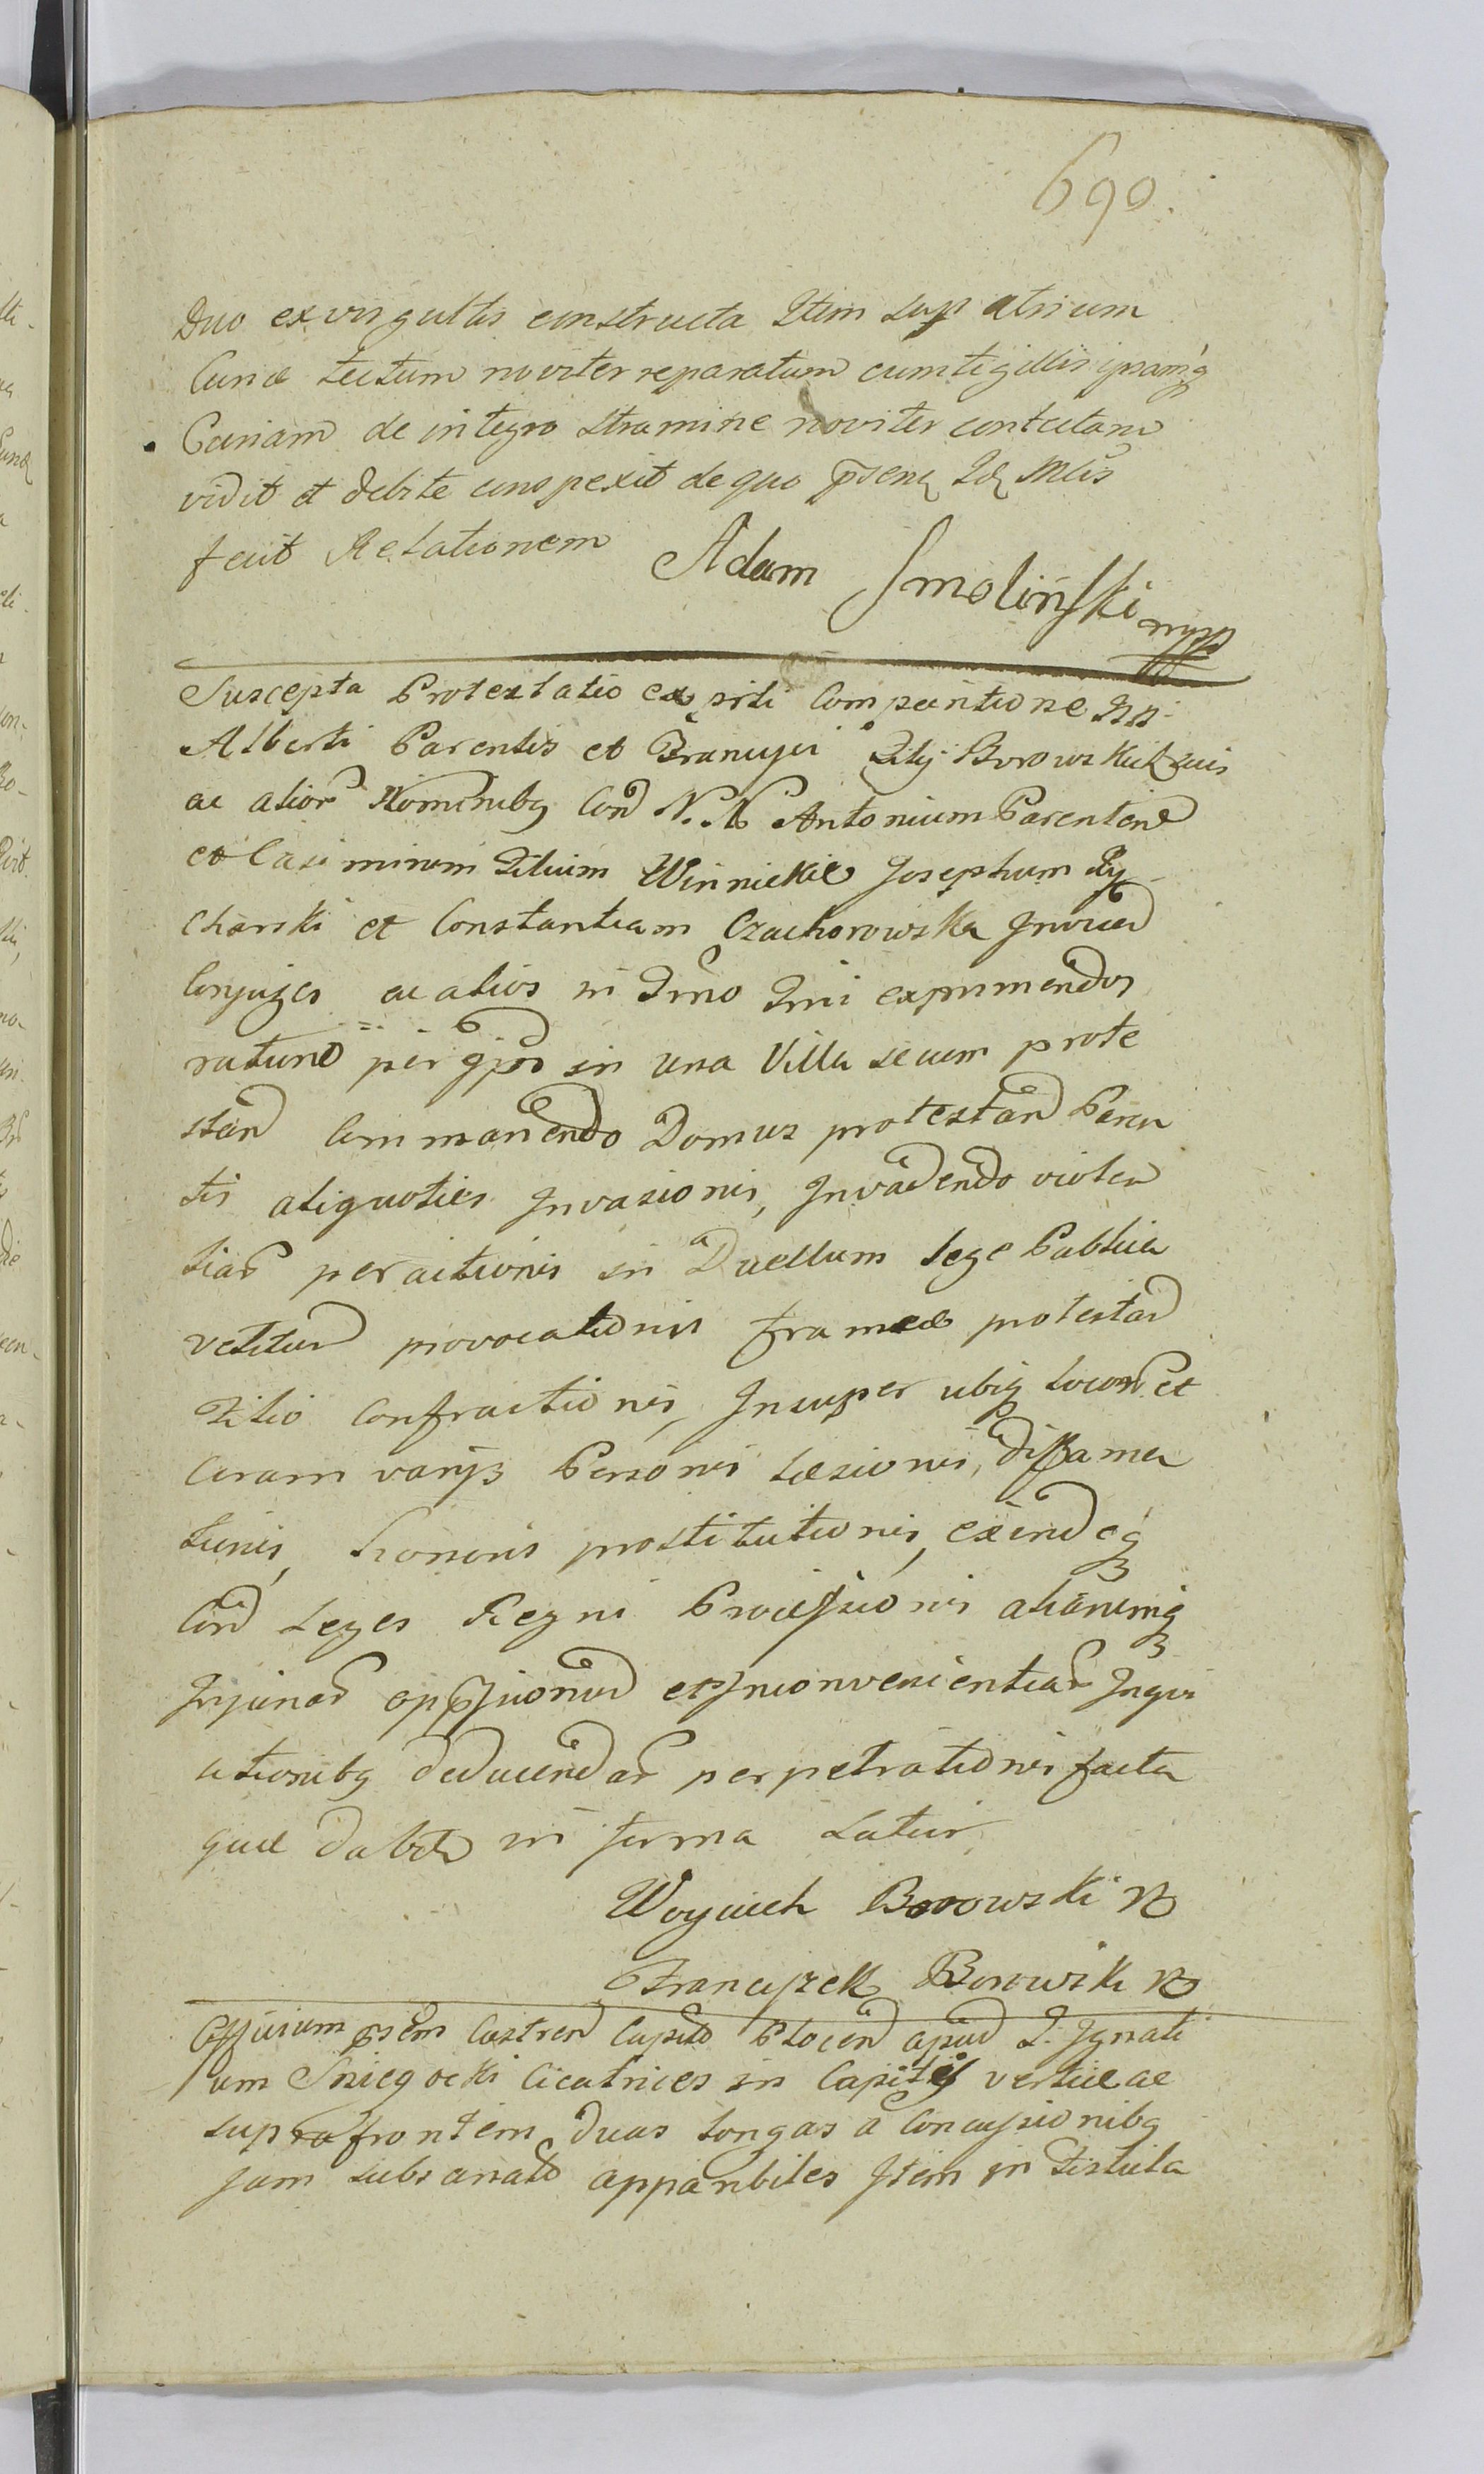 690.
Duo ex virgultis constructa Item sup atrium
Curiæ tectum noviter reparatum cum tigillis ipsamq
Curiam de integro stramine noviter contectam
vidit et debite conspexit de quo psens Idq Mlis
fecit Relationem Adam Smolinski mpp
Suscepta Protestatio ex psti Compacitione NN
Alberti Parentis et Francisci Filij Borowskich suis
ac alior Nominibq Con N. N Antonium Parentem
et Casimirum Filium Winnickie Josephum Ry
charski et Constantiam Czachorowska Invicem
Conjuges ac alios in Tmo Tmi exprimendos
ratione per in una Villa secum prote
stan Commanendo Domus protestan Paren
tis aliquoties Invasionis, Invadendo violen
tiar peractionis in Duellum lege Publica
vetitum provocationis frameæ protestan
Filio Confractionis, Insuper ubiq locor et
Coram varijs Personis Læsionis, diffama
tionis, honoris prostitutionis, exindeq
Con Leges Regni Processionis aliarumq
Injuriar oppssionum et Inconvenientiar Inqui
sitionibq deducendar perpetrationis facta
quæ dabitr in forma Latiori
Woyciech Borowski
Franciszek Borowski
Officium psens Castren Capitle Plocen apud G. Ignati
um Sniegocki Cicatrices in Capitis vertice ac
supra frontem duas longas a Concussionibq
jam subsanato apparibiles Item in Fistula